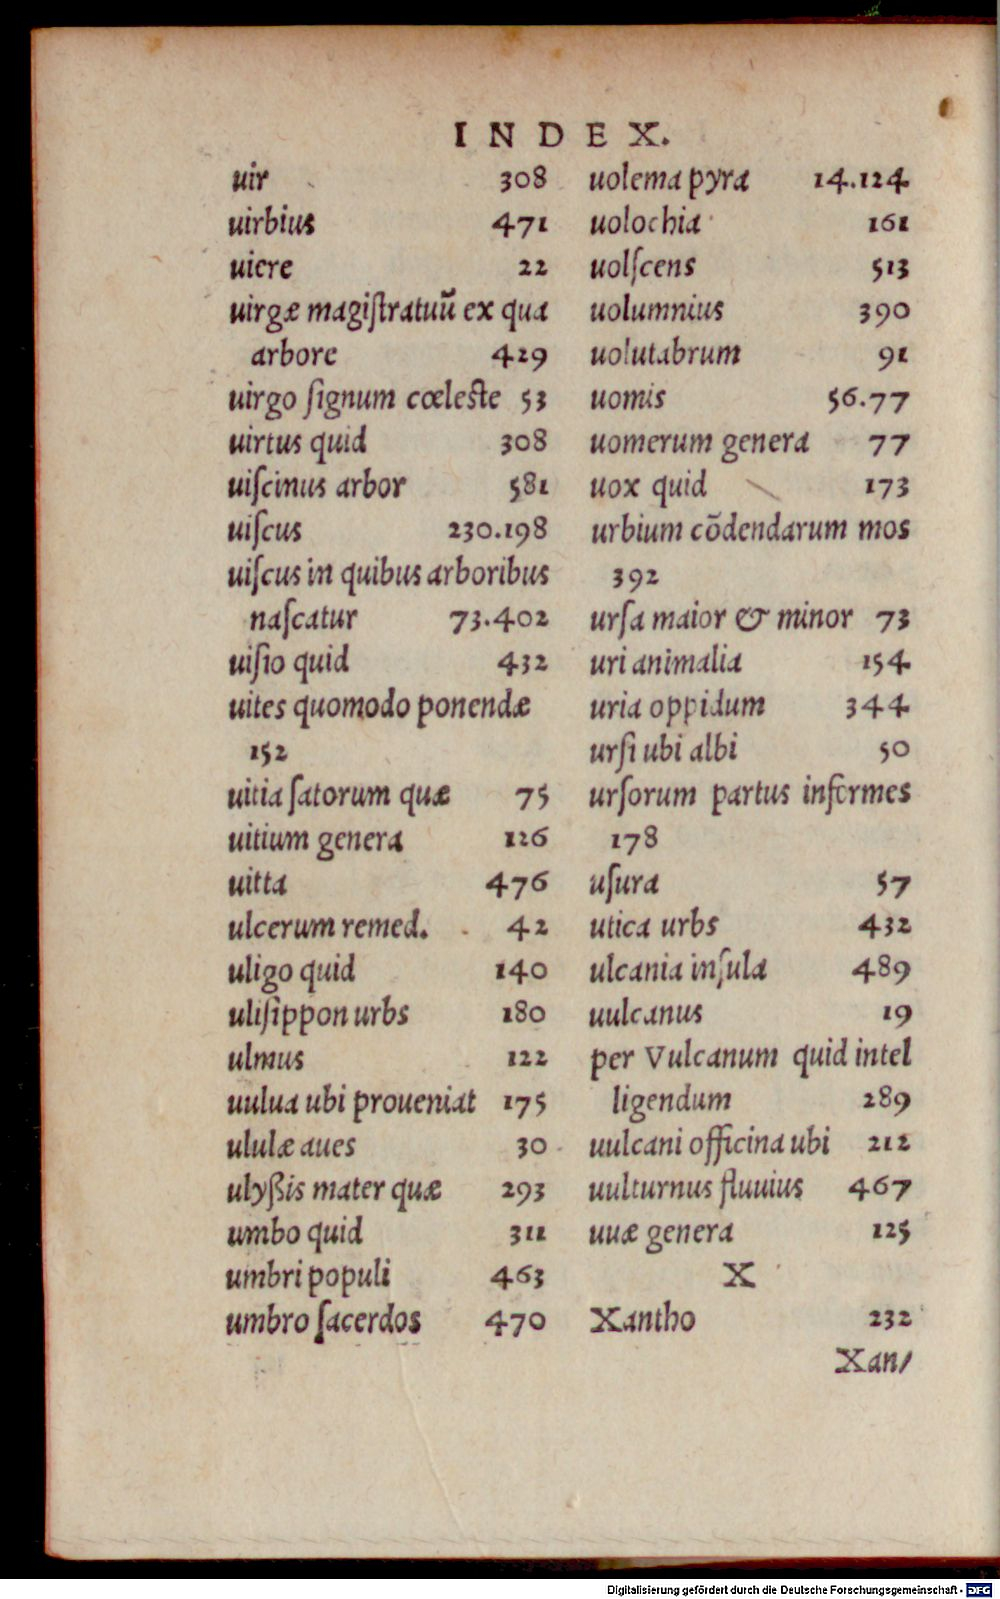 INDEX.
uir 308
uirbius 471
uiere 22
uirgæ magiſtratuũ ex qua
arbore 429
uirgo ſignum cœleſte 53
uirtus quid 308
uiſcinus arbor 581
uiſcus 230.198
uiſcus in quibus arboribus
naſcatur 73.402
uiſio quid 432
uites quomodo ponendæ
152
uitia ſatorum quæ 75
uitium genera 126
uitta 476
ulcerum remed. 42
uligo quid 140
uliſippon urbs 180
ulmus 122
uulua ubi proueniat 175
ululæ aues 30
ulyßis mater quæ 293
umbo quid 311
umbri populi 463
umbro ſacerdos 470
uolema pyra 14.124
uolochia 161
uolſcens 513
uolumnius 390
uolutabrum 91
uomis 56.77
uomerum genera 77
uox quid 173
urbium cõdendarum mos
392
urſa maior & minor 73
uri animalia 154
uria oppidum 344
urſi ubi albi 50
urſorum partus informes
178
uſura 57
utica urbs 432
ulcania inſula 489
uulcanus 19
per Vulcanum quid intel
ligendum 289
uulcani officina ubi 212
uulturnus fluuius 467
uuæ genera 125
X
Xantho 232
Xan/
Digitalisierung gefördert durch die Deutsche Forschungsgemeinschaft - DFG